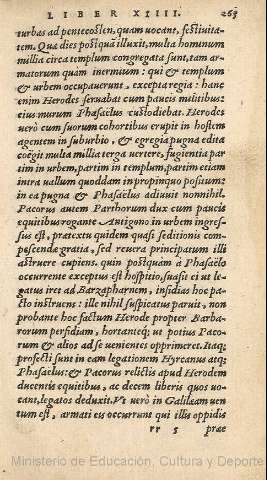 LIBER XIIII. 263
turbas ad pentecosten, quam uocant, festiuita-
tem. Qua dies postquā illuxit, multa hominum
millia circa templum congregata sunt, tam ar-
matorum quam inermium: qui & templum
& urbem occupauerunt, excepta regia: hanc
enim Herodes seruabat cum paucis militibus:
eius murum Phasaelus custodiebat. Herodes
uerò cum suorum cohortibus erupit in hostem
agentem in suburbio, & egregia pugna edita
coëgit multa millia terga vertere, fugientia par
tim in urbem, partim in templum, partim etiam
intra uallum quoddam in propinquo positum:
in ea pugna & Phasaelus adiuuit nonnihil.
Pacorus autem Parthorum dux cum paucis
equitibus rogante Antigono in urbem ingres-
sus est, prætextu quidem quasi seditionis com-
pescendæ gratia, sed reuera principatum illi
astruere cupiens. quin postquàm à Phasaelo
occurrente exceptus est hospitio, suasit ei ut le-
gatus iret ad Barzapharnem, insidias hoc pa-
cto instruens: ille nihil suspicatus paruit, non
probante hoc factum Herode propter Barba-
rorum perfidiam, hortanteq; ut potius Paco-
rum & alios ad se uenientes opprimeret. Itaq;
profecti sunt in eam legationem Hyrcanus atq;
Phasaelus: & Pacorus relictis apud Herodem
ducentis equitibus, ac decem liberis quos uo-
cant, legatos deduxit. Vt uerò in Galilæam uen
tum est, armati eis occurrunt qui illis oppidis
rr 5 præ
Ministerio de Educación, Cultura y Deporte